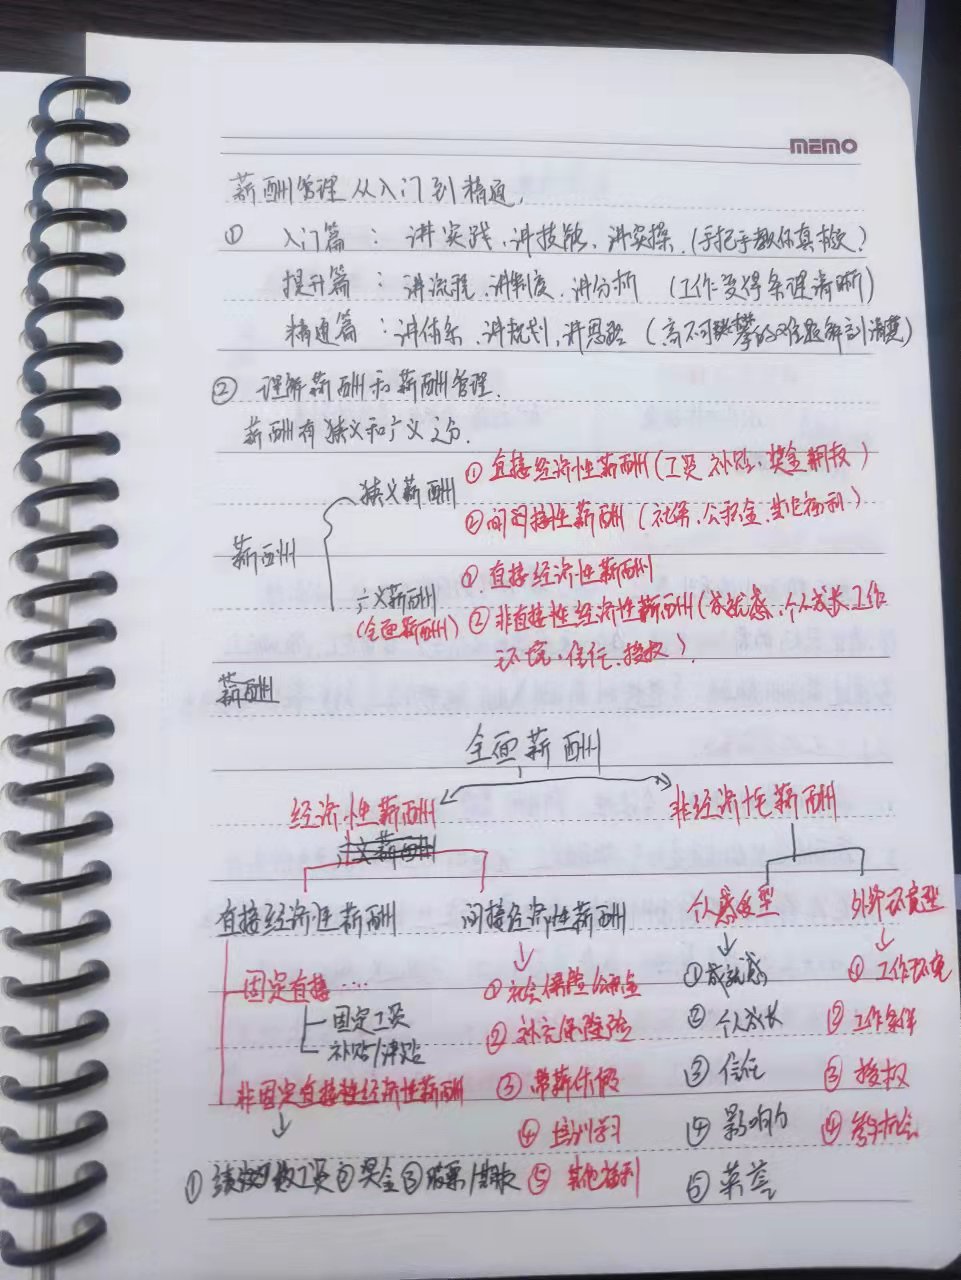 MEMO
薪酬管理从入门到精通,
① 入门篇：讲实践、讲技能、讲实操,(手把手教你真校)
提升篇：讲流程、讲制度、讲分析 (工作变得条理清晰)
精通篇：讲体系、讲规划,讲思路 (高不可攀的难题解剖清楚)
② 理解薪酬和薪酬管理.
薪酬有狭义和广义之分.
薪酬
狭义薪酬
① 直接经济性薪酬(工资 补贴、奖金 期权)
② 间接性薪酬(社保、公积金、其它福利)
广义薪酬
(全面薪酬)
① 直接经济性薪酬
② 非直接性经济性薪酬(成就感、个人成长 工作
环境、信任、授权).
薪酬
全面薪酬
经济性薪酬 非经济性薪酬
直接经济性薪酬 间接经济性薪酬 个人感受型 外部环境型
固定直接 ····
固定工资
补贴/津贴
非固定直接性经济性薪酬
① 绩效工资 ② 奖金 ③ 股票/期权
① 社会保险 公积金
② 补充保险
③ 带薪休假
④ 培训学习
⑤ 其他福利
① 成就感
② 个人成长
③ 信任
④ 影响力
⑤ 荣誉
① 工作环境
② 工作条件
③ 授权
④ 参与机会